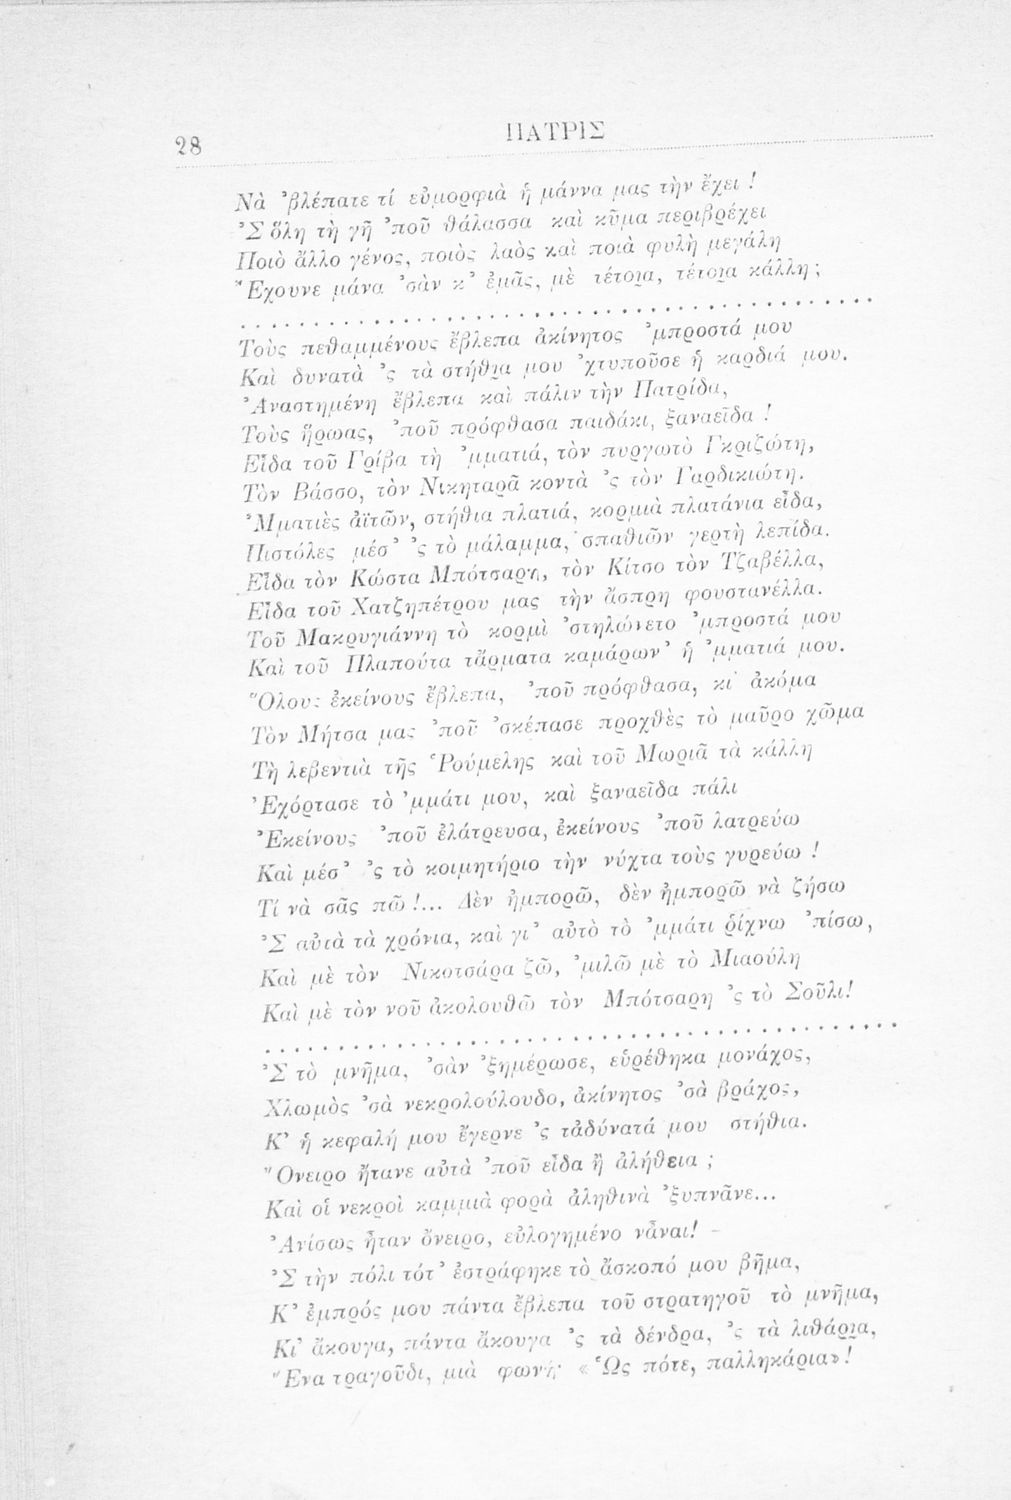 28
ΠΑΤΡΙΣ
Νὰ ᾿βλέπατε τί εὐμορφιὰ ἡ μάννα μας τὴν ἔχει !
᾿Σ ὅλη τὴ γῆ ᾿ποῦ θάλασσα καὶ κῦμα περιβρέχει
Ποιὸ ἄλλο γένος, ποιὸς λαὸς καὶ ποιὰ φυλὴ μεγάλη
Ἔχουνε μάνα ᾿σὰν κ᾿ ἐμᾶς, μὲ τέτοια, τέτοια κάλλη ;
. . . . . . . . . . . . . . . . . . . . . . . . . . . . . . . . . . . . . . . . .
Τοὺς πεθαμμένους ἔβλεπα ἀκίνητος ᾿μπροστά μου
Καὶ δυνατὰ ᾿ς τὰ στήθια μου ᾿χτυποῦσε ἡ καρδιά μου.
Ἀναστημένη ἔβλεπα καὶ πάλιν τὴν Πατρίδα,
Τοὺς ἥρωας, ᾿ποῦ πρόφθασα παιδάκι, ξαναεῖδα !
Εἶδα τοῦ Γρίβα τὴ ᾿μματιά, τὸν πυργωτὸ Γκριζώτη,
Τὸν Βάσσο, τὸν Νικηταρᾶ κοντὰ ᾿ς τὸν Γαρδικιώτη.
᾿Μματιὲς ἀϊτῶν, στήθια πλατιά, κορμιὰ πλατάνια εἶδα,
Πιστόλες μέσ᾿ ᾿ς τὸ μάλαμμα, σπαθιῶν γερτὴ λεπίδα.
Εἶδα τὸν Κώστα Μπότσαρη, τὸν Κίτσο τὸν Τζαβέλλα,
Εἶδα τοῦ Χατζηπέτρου μας τὴν ἄσπρη φουστανέλλα.
Τοῦ Μακρυγιάννη τὸ κορμὶ ᾿στηλώνετο ᾿μπροστά μου
Καὶ τοῦ Πλαπούτα τἄρματα καμάρων᾿ ἡ ᾿μματιά μου.
Ὅλους ἐκείνους ἔβλεπα, ᾿ποῦ πρόφθασα, κι᾿ ἀκόμα
Τὸν Μήτσα μας ᾿ποῦ ᾿σκέπασε προχθὲς τὸ μαῦρο χῶμα
Τὴ λεβεντιὰ τῆς Ῥούμελης καὶ τοῦ Μωριᾶ τὰ κάλλη
Ἐχόρτασε τὸ ᾿μμάτι μου, καὶ ξαναεῖδα πάλι
Ἐκείνους ᾿ποῦ ἐλάτρευσα, ἐκείνους ᾿ποῦ λατρεύω
Καὶ μέσ᾿ ᾿ς τὸ κοιμητήριο τὴν νύχτα τοὺς γυρεύω !
Τί νὰ σᾶς πῶ !... Δὲν ἠμπορῶ, δὲν ἠμπορῶ νὰ ζήσω
᾿Σ αὐτὰ τὰ χρόνια, καὶ γι᾿ αὐτὸ τὸ ᾿μμάτι ῥίχνω ᾿πίσω,
Καὶ μὲ τὸν Νικοτσάρα ζῶ, ᾿μιλῶ μὲ τὸ Μιαούλη
Καὶ μὲ τὸν νοῦ ἀκολουθῶ τὸν Μπότσαρη ᾿ς τὸ Σοῦλι!
. . . . . . . . . . . . . . . . . . . . . . . . . . . . . . . . . . . . . . . . .
᾿Σ τὸ μνῆμα, ᾿σὰν ᾿ξημέρωσε, εὑρέθηκα μονάχος,
Χλωμὸς ᾿σὰ νεκρολούλουδο, ἀκίνητος ᾿σὰ βράχος,
Κ᾿ ἡ κεφαλή μου ἔγερνε ᾿ς τἀδύνατά μου στήθια.
Ὄνειρο ἤτανε αὐτὰ ᾿ποῦ εἶδα ἢ ἀλήθεια ;
Καὶ οἱ νεκροὶ καμμιὰ φορὰ ἀληθινὰ ᾿ξυπνᾶνε...
Ἀνίσως ἦταν ὄνειρο, εὐλογημένο νἆναι! -
᾿Σ τὴν πόλι τότ᾿ ἐστράφηκε τὸ ἄσκοπό μου βῆμα,
Κ᾿ ἐμπρός μου πάντα ἔβλεπα τοῦ στρατηγοῦ τὸ μνῆμα,
Κι᾿ ἄκουγα, πάντα ἄκουγα ᾿ς τὰ δένδρα, ᾿ς τὰ λιθάρια,
Ἕνα τραγοῦδι, μιὰ φωνή: «Ὣς πότε, παλληκάρια»!